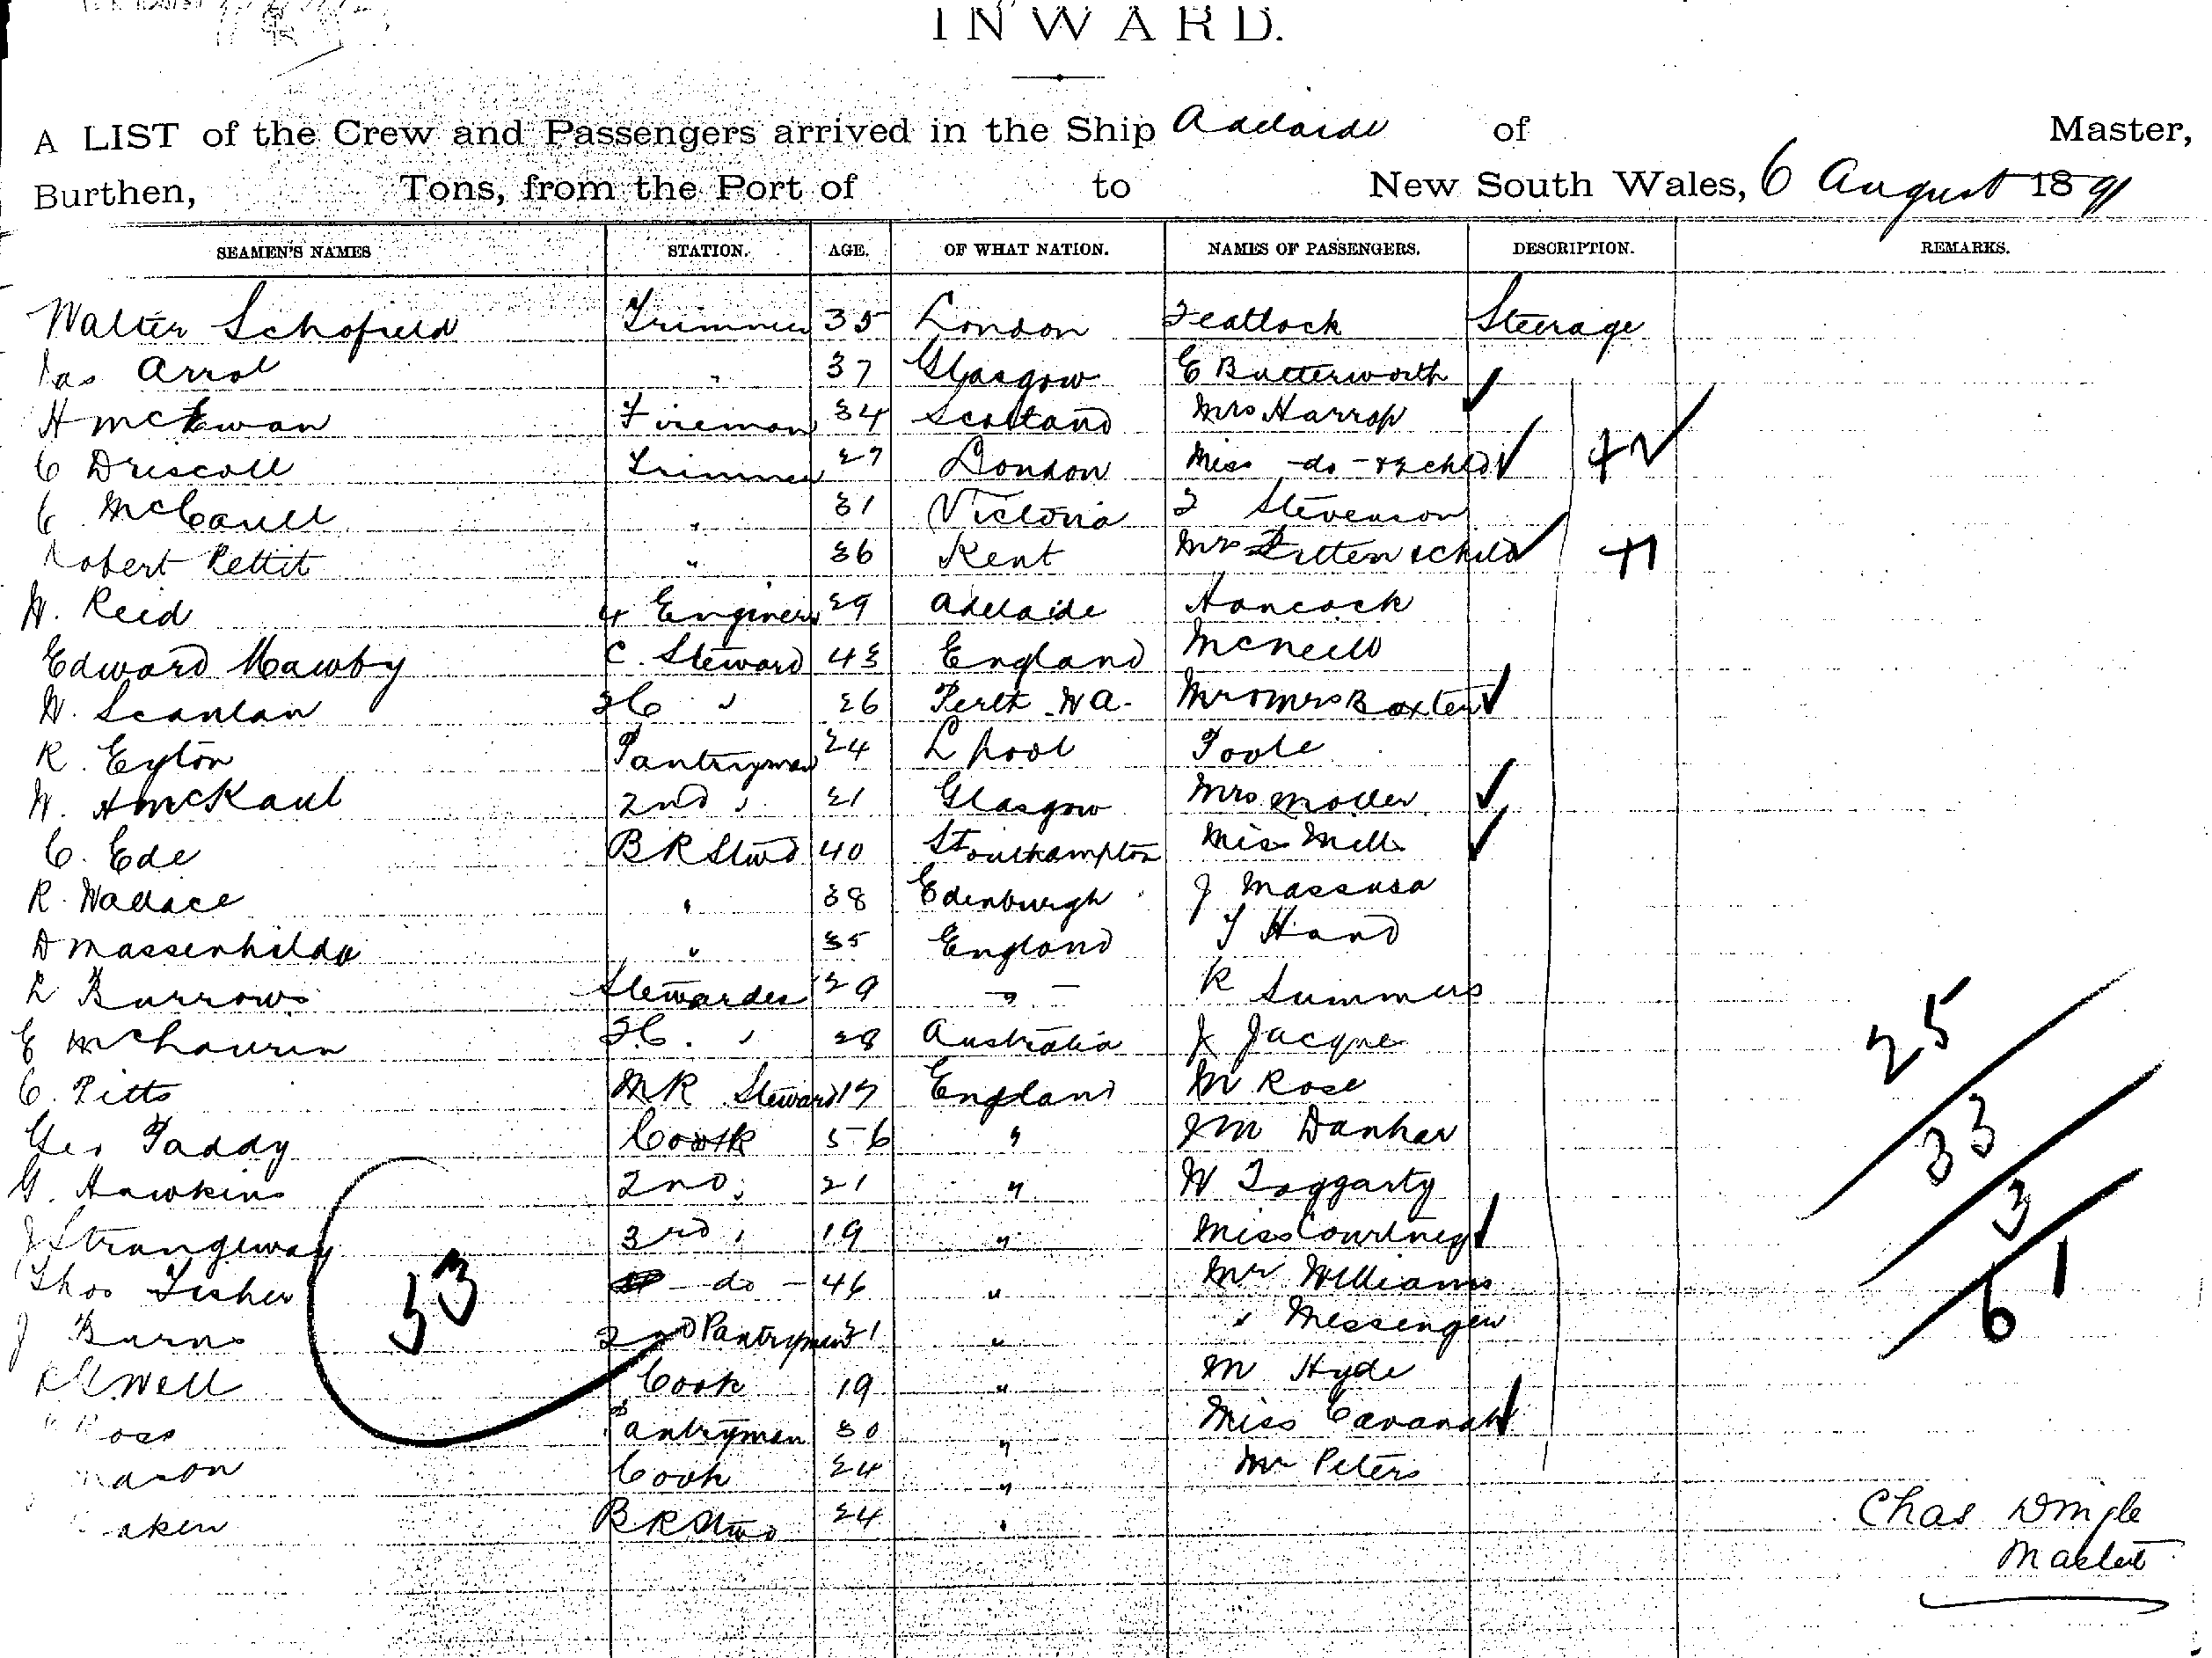 INWARD.
A LIST of the Crew and Passengers arrived in the Ship Adelaide of Master,
Burthen, Tons, from the Port of to New South Wales, 6 August 1891
SEAMEN'S NAMES STATION. AGE. OF WHAT NATION. NAMES OF PASSENGERS. DESCRIPTION. REMARKS.
Walter Schofield Trimmer 35 London Featlock Steerage
Jas Arrol " 37 Glasgow E Butterworth
H McEwan Fireman 34 Scotland Mrs Harrop
C Driscoll Trimmer 27 London Miss -do- & 2 child +2
C McCaull " 31 Victoria Stevenson
Robert Pettit " 36 Kent Mrs & child +1
W. Reid 4 Engineer 29 Adelaide Hancock
Edward Mawby C. Steward 43 England McNeill
W. Scanlan 2C " 26 Perth W A. Mr & Mrs Baxter
R. Eyton Pantryman 24 L pool Poole
W. A McKaul 2nd " 21 Glasgow Mrs Moller
C. Ede B R Stwd 40 Southampton Miss Mills
R. Wallace " 38 Edinburgh J
D Massenhilda " 35 England T Hand
L Burrows Stewardess 29 " R Summers
E McLaurin 2C. " 28 Australia J Jacque
C. Pitts M R Steward 17 England M Rose
Geo Taddy Cook 56 " J M Danhar
G. Hawkins 2nd " 21 " W Taggarty
J Strangeway 3rd " 19 " Miss Courtney
Thos Fisher - do - 46 " Mr Williams
J Burns 2nd Pantryman 21 " " Messenger
Well Cook 19 " M Hyde
Ross Pantryman 30 " Miss Cavanah
Mason Cook 24 " Mr Peters
B R Stwd 24 "
53
25
33
3
61
Chas Dingle
Master